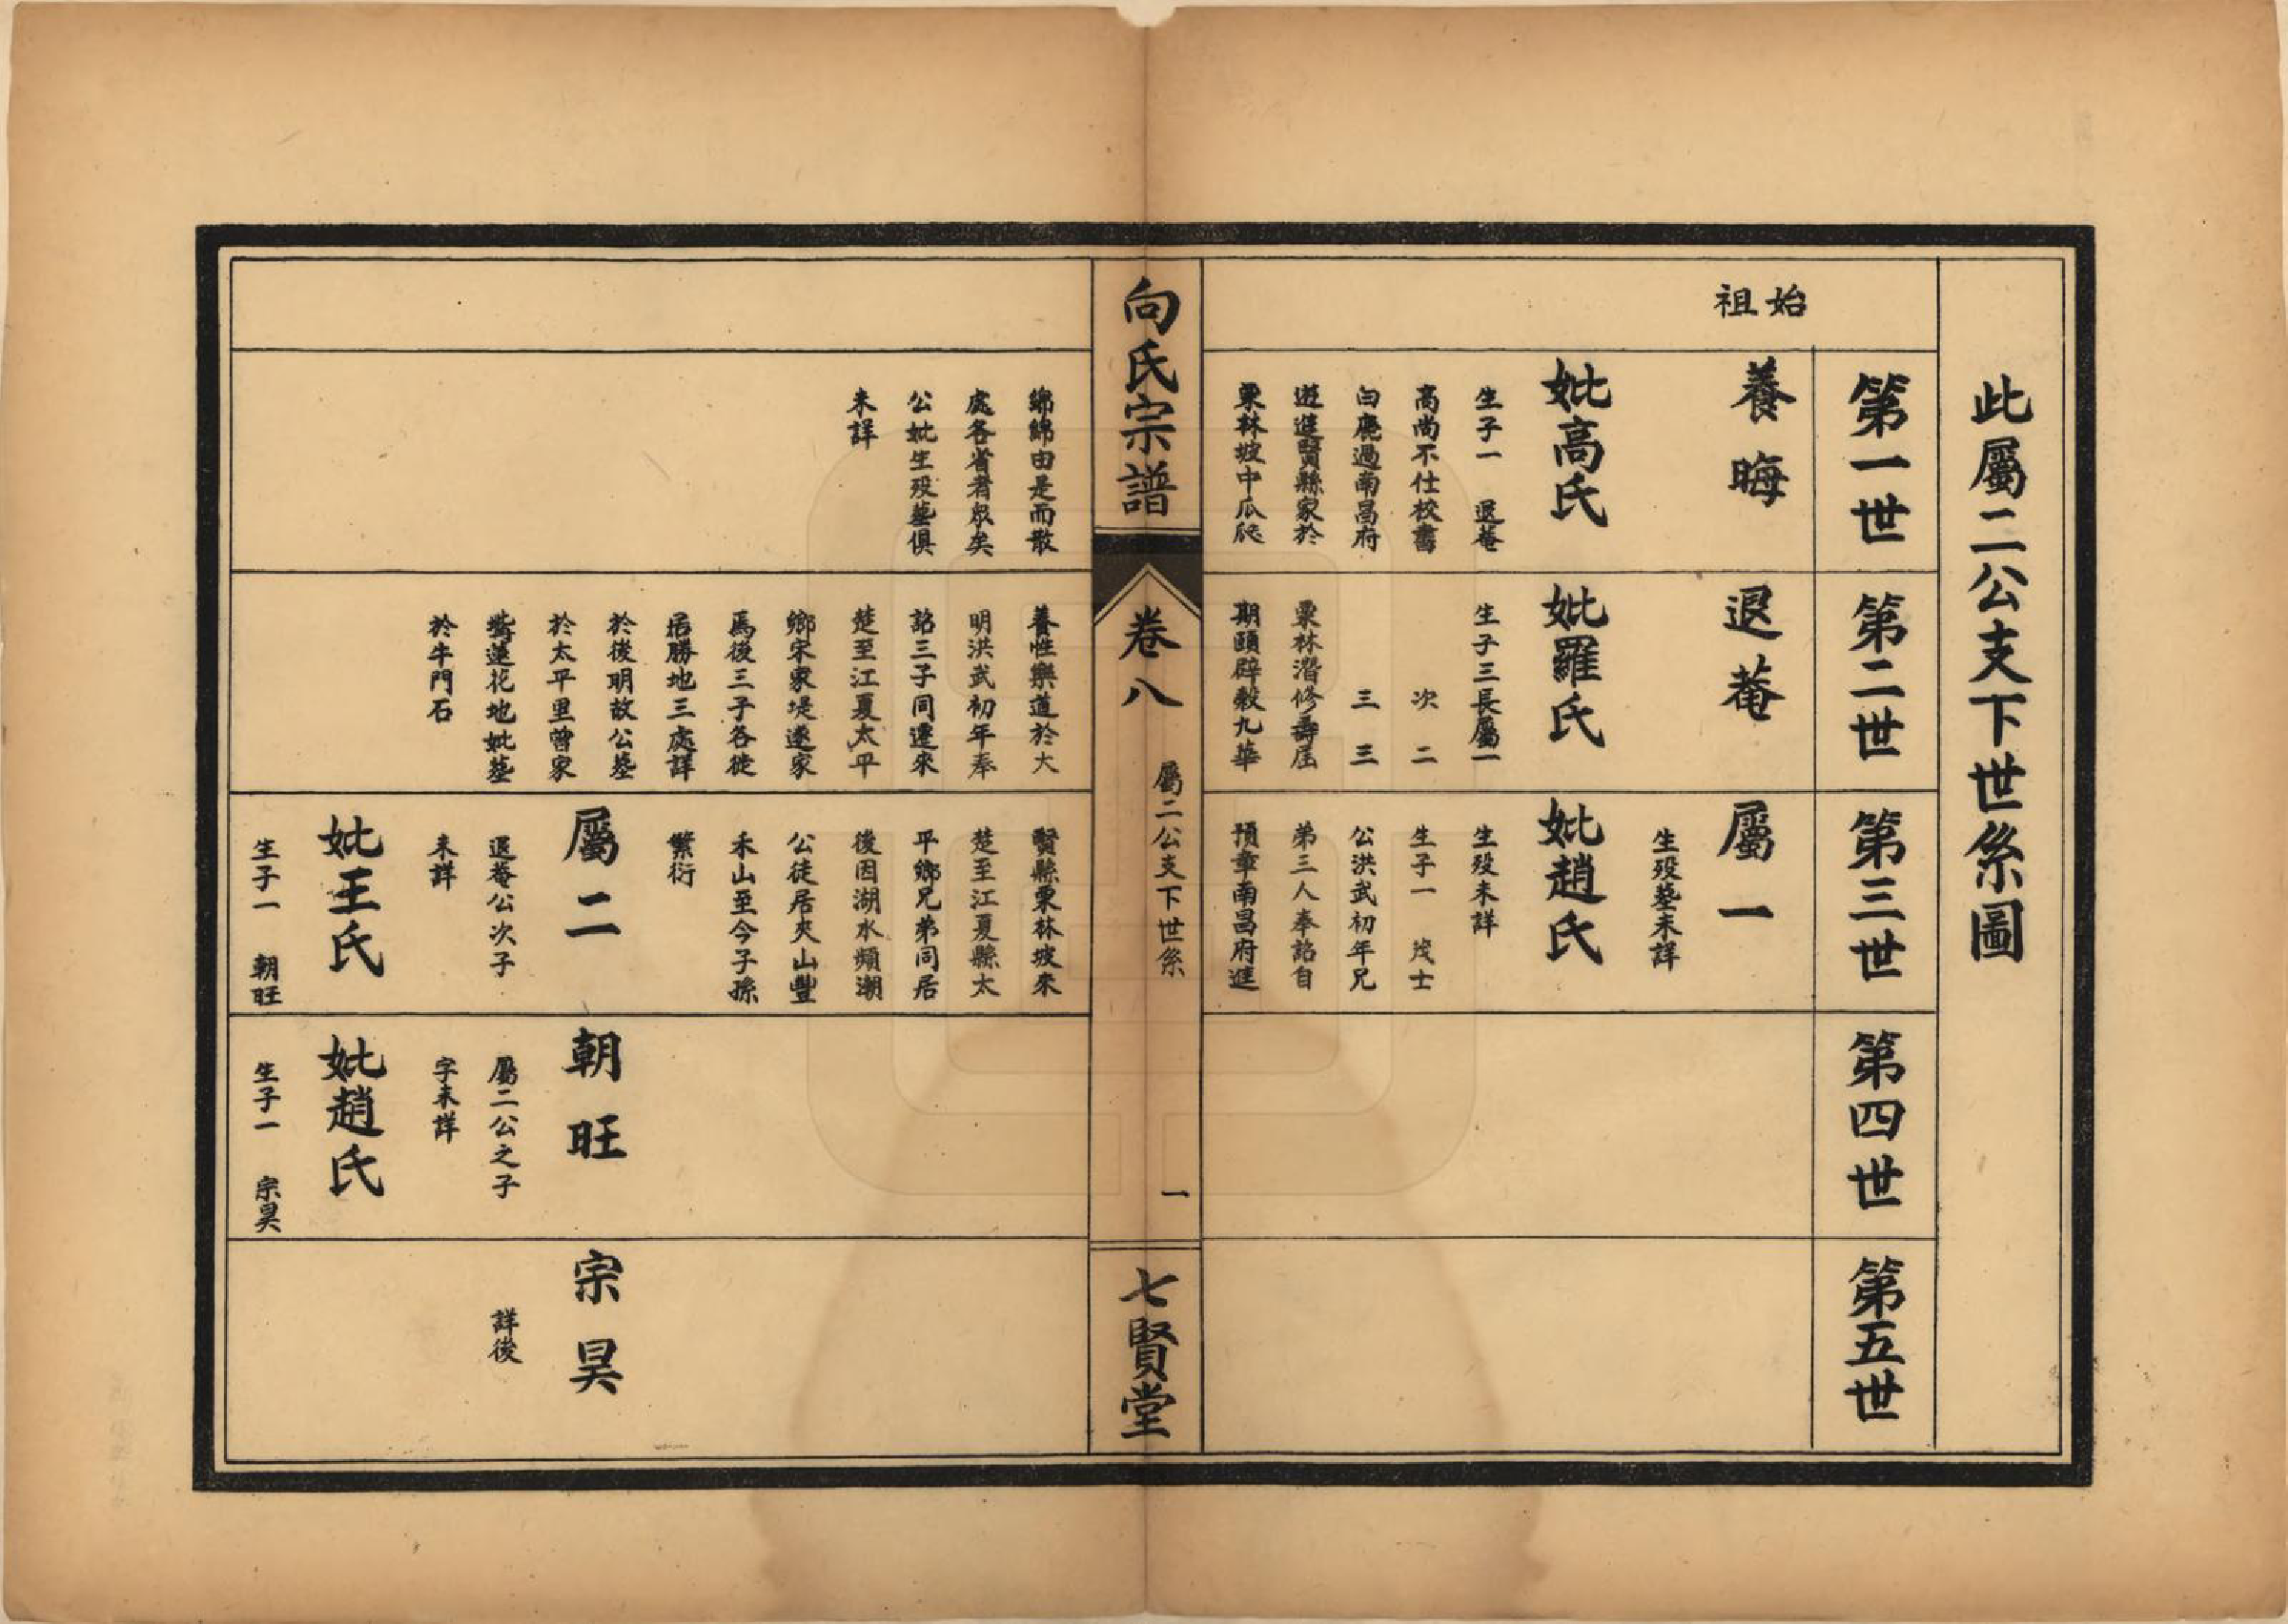 此屬二公支下世系圖
始祖
第一世
養晦
妣高氏
生子一 退菴
高尚不仕校書
白鹿過南昌府
遊進賢縣家於
栗林坡中瓜瓞
綿綿由是而散
處各省者眾矣
公妣生歿墓俱
未詳
第二世
退菴
妣羅氏
生子三長屬一
次二
三三
栗林潛修壽屆
期頤辟穀九華
養性樂道於大
明洪武初年奉
詔三子同遷來
楚至江夏太平
鄉宋家堤遂家
焉後三子各徙
居勝地三處詳
於後明故公墓
於太平里曾家
嘴蓮花地妣墓
於牛門石
第三世
屬一
生歿墓未詳
妣趙氏
生歿未詳
生子一 茂士
公洪武初年兄
弟三人奉詔自
預章南昌府進
賢縣栗林坡來
楚至江夏縣太
平鄉兄弟同居
後因湖水頻潮
公徒居夾山豐
禾山至今子孫
繁衍
屬二
退菴公次子
未詳
妣王氏
生子一 朝旺
第四世
朝旺
屬二公之子
字未詳
妣趙氏
生子一 宗昊
第五世
宗昊
詳後
向氏宗譜
卷八
屬二公支下世系
一
七賢堂